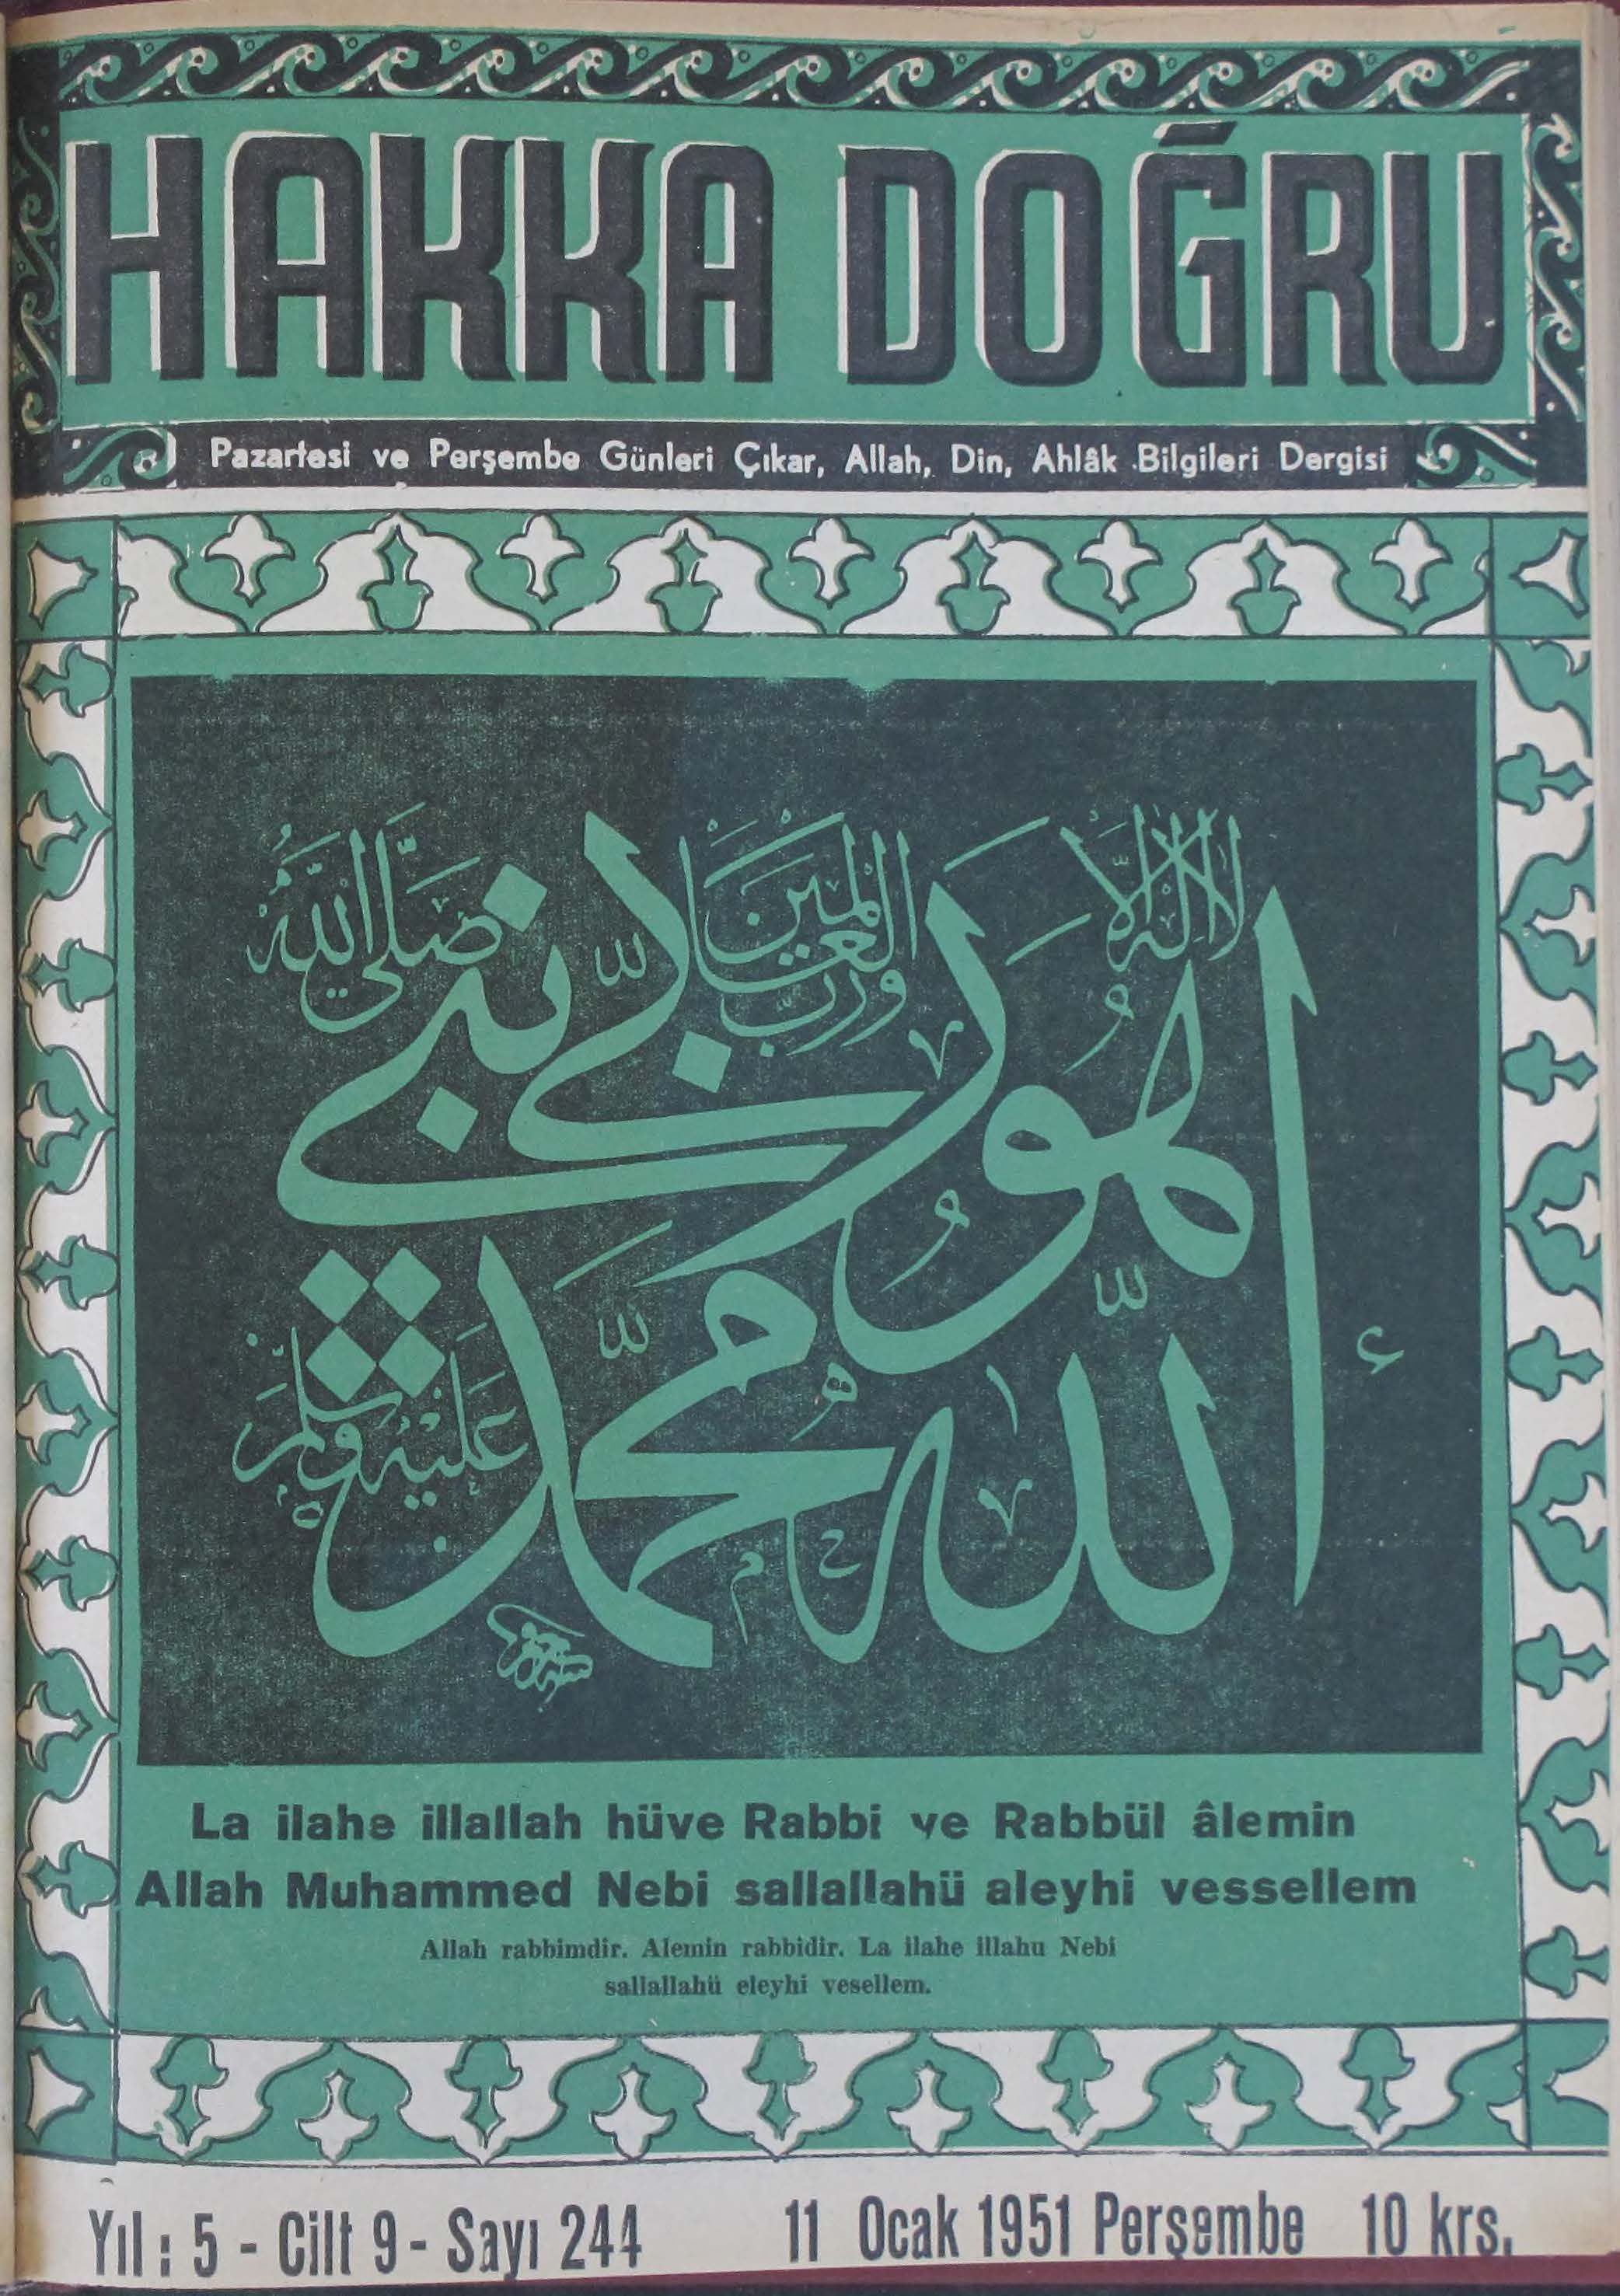 HAKKA DOĞRU
Pazartesi ve Perşembe Günleri Çıkar, Allah, Din, Ahlâk Bilgileri Dergisi
لا اله الا
الله هو ربي
ورب العالمين
محمد نبي
صلى الله
عليه وسلم
La ilahe illallah hüve Rabbi ve Rabbül âlemin
Allah Muhammed Nebi sallallahü aleyhi vessellem
Allah rabbimdir. Alemin rabbidir. La ilahe illahu Nebi
sallallahü eleyhi vesellem.
Yıl : 5 - Cilt 9 - Sayı 244 11 Ocak 1951 Perşembe 10 krs.